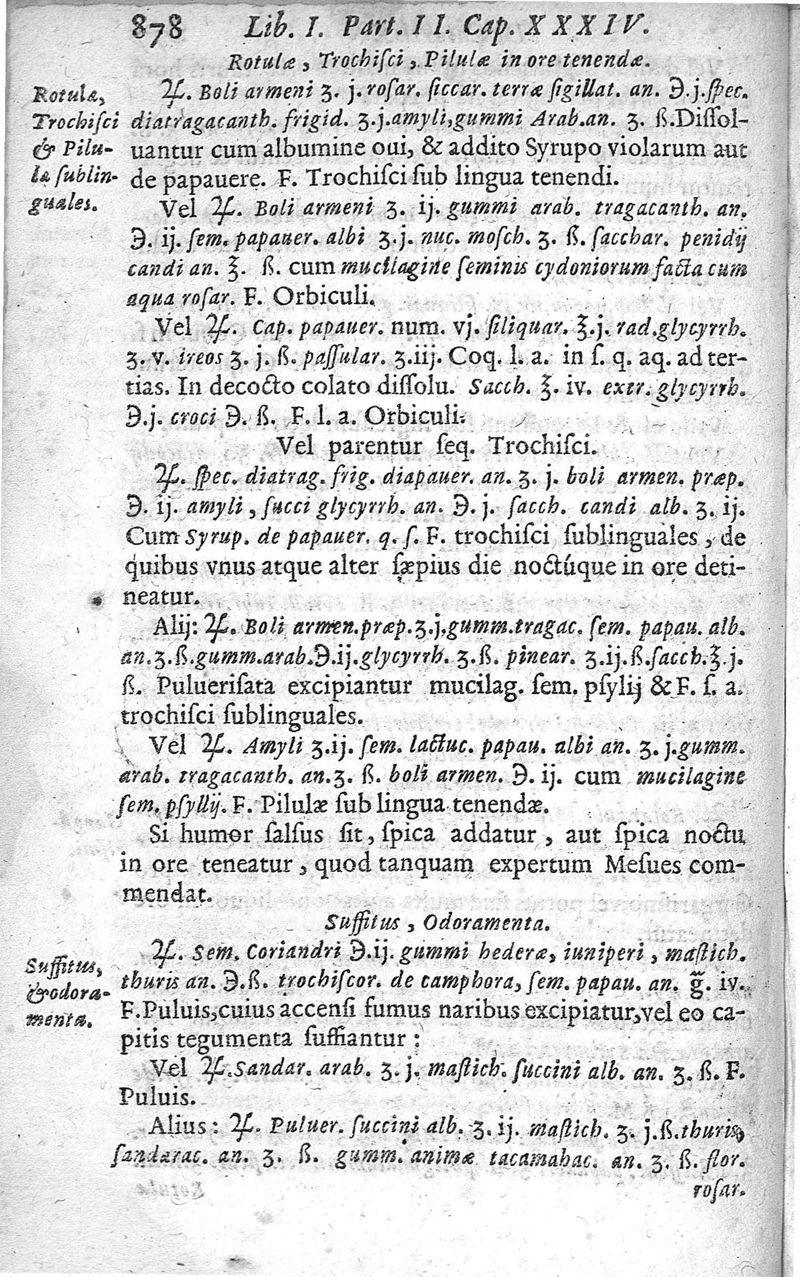 878 Lib. I. Part. II. Cap. XXXIV.
Rotulæ, Trochiſci, Pilulæ in ore tenendæ.
Rotulæ,
Trochiſci
& Pilu-
læ ſublin-
guales.
℞. Boli armeni ʒ. j. roſar. ſiccar. terræ ſigillat. an. ℈.j. ſpec.
diatragacanth. frigid. ʒ.j. amyli, gummi Arab. an. ʒ. ß. Diſſol-
uantur cum albumine oui, & addito Syrupo violarum aut
de papauere. F. Trochiſci ſub lingua tenendi.
Vel ℞. Boli armeni ʒ. ij. gummi arab. tragacanth. an.
℈. ij. ſem. papauer. albi ʒ.j. nuc. moſch. ʒ. ß. ſacchar. penidij
candi an. ℥. ß. cum mucilagine ſeminis cydoniorum facta cum
aqua roſar. F. Orbiculi.
Vel ℞. Cap. papauer. num. vj. ſiliquar. ℥.j. rad. glycyrrh.
ʒ. v. ireos ʒ. j. ß. paſſular. ʒ.iij. Coq. l. a. in ſ. q. aq. ad ter-
tias. In decocto colato diſſolu. Sacch. ℥. iv. extr. glycyrrh.
℈.j. croci ℈. ß. F. l. a. Orbiculi.
Vel parentur ſeq. Trochiſci.
℞. ſpec. diatrag. frig. diapauer. an. ʒ. j. boli armen. præp.
℈. ij. amyli, ſucci glycyrrh. an. ℈. j. ſacch. candi alb. ʒ. ij.
Cum Syrup. de papauer. q. ſ. F. trochiſci ſublinguales, de
quibus vnus atque alter ſæpius die noctúque in ore deti-
neatur.
Alij: ℞. Boli armen. præp. ʒ.j. gumm. tragac. ſem. papau. alb.
an. ʒ. ß. gumm. arab. ℈.ij. glycyrrh. ʒ.ß. pinear. ʒ.ij.ß. ſacch. ℥. j.
ß. Pulueriſata excipiantur mucilag. ſem. pſylij & F. ſ. a.
trochiſci ſublinguales.
Vel ℞. Amyli ʒ.ij. ſem. lactuc. papau. albi an. ʒ. j. gumm.
arab. tragacanth. an. ʒ. ß. boli armen. ℈. ij. cum mucilagine
ſem. pſyllij. F. Pilulæ ſub lingua tenendæ.
Si humor ſalſus ſit, ſpica addatur, aut ſpica noctu
in ore teneatur, quod tanquam expertum Meſues com-
mendat.
Suffitus, Odoramenta.
Suffitus,
& odora-
menta.
℞. Sem. Coriandri ℈.ij. gummi hederæ, iuniperi, maſtich.
thuris an. ℈.ß. trochiſcor. de camphora, ſem. papau. an. g̃. iv.
F. Puluis, cuius accenſi fumus naribus excipiatur, vel eo ca-
pitis tegumenta ſuffiantur:
Vel ℞. Sandar. arab. ʒ. j. maſtich. ſuccini alb. an. ʒ. ß. F.
Puluis.
Alius: ℞. Puluer. ſuccini alb. ʒ. ij. maſtich. ʒ. j.ß. thuris,
ſandarac. an. ʒ. ß. gumm. animæ tacamahac. an. ʒ. ß. flor.
roſar.